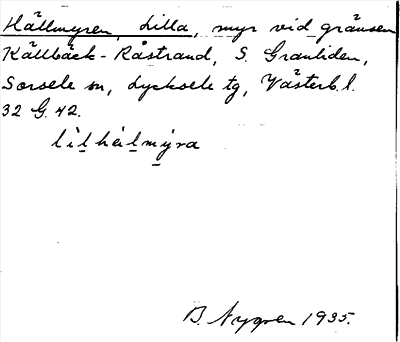 Hällmyren, Lilla, myr vid gränsen
Källbäck - Råstrand, S. Granliden,
Sorsele sn, Lycksele tg, Västerb. l.
32 G. 42.
lìlhèilmýra
B. Nygren 1935.